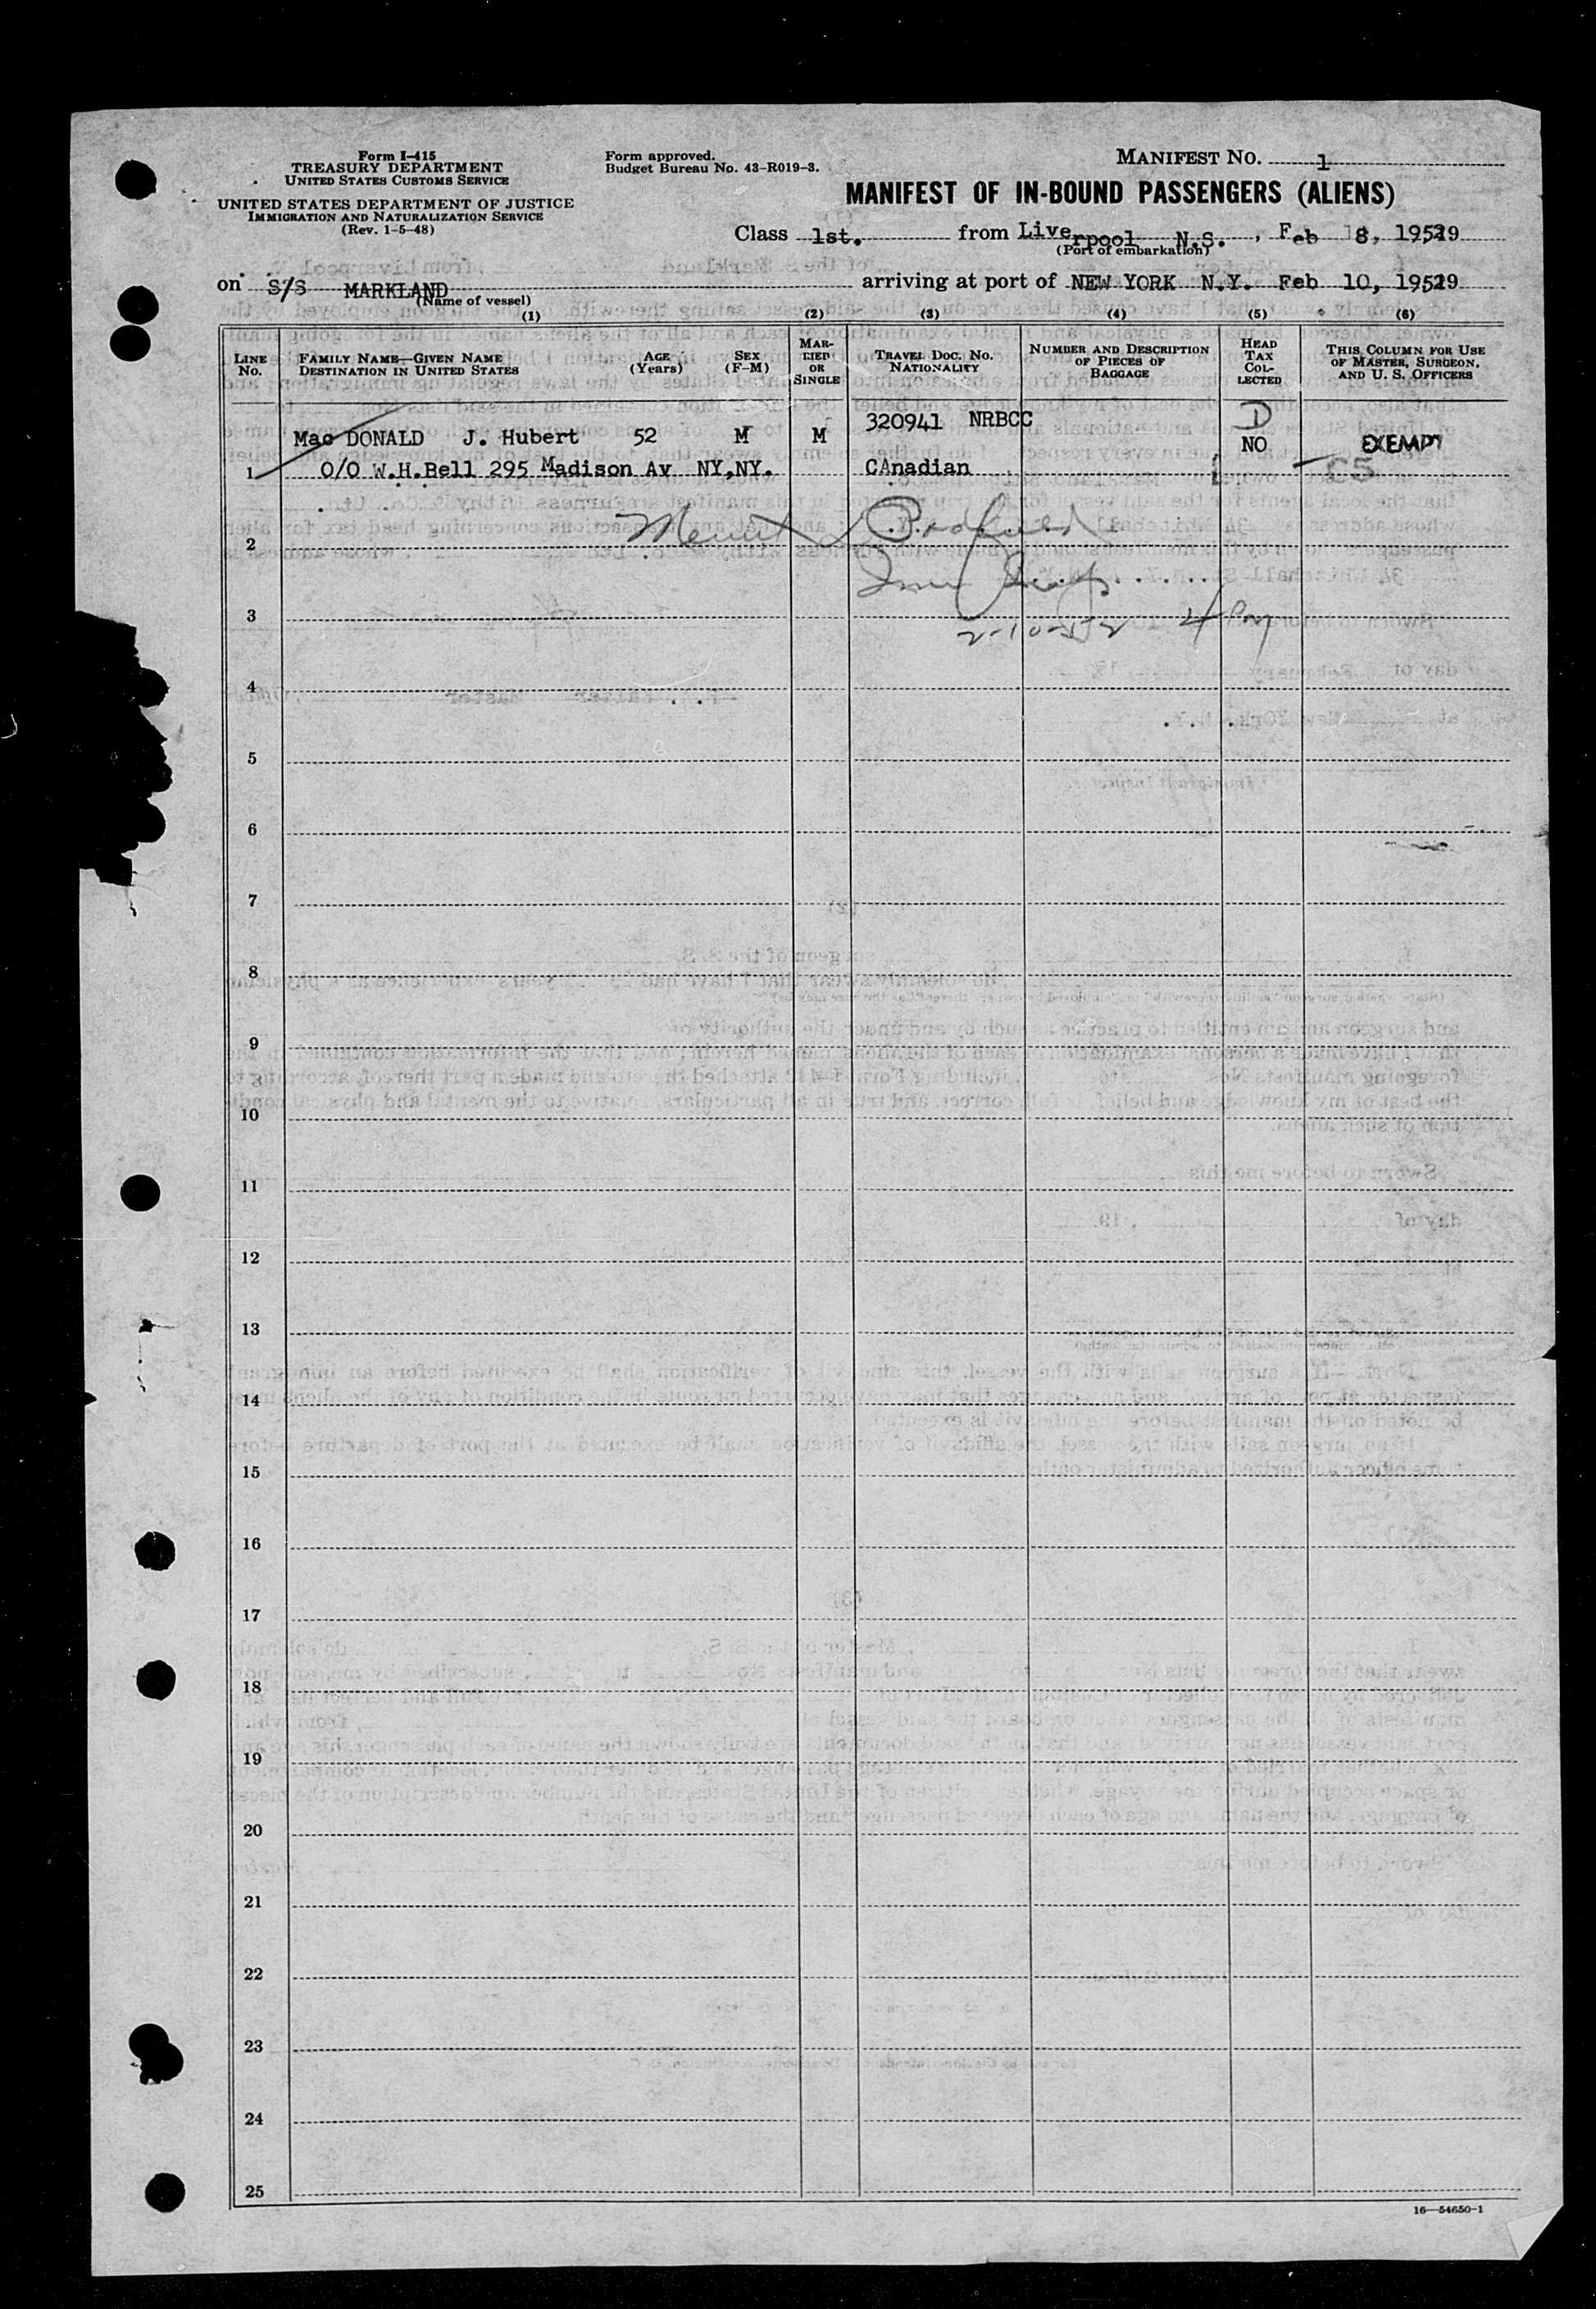 Form I-415
TREASURY DEPARTMENT
UNITED STATES CUSTOMS SERVICE
UNITED STATES DEPARTMENT OF JUSTICE
IMMIGRATION AND NATURALIZATION SERVICE
(Rev. 1-5-48)
Form approved.
Budget Bureau No. 43-R019-3.
MANIFEST NO. 1
MANIFEST OF IN-BOUND PASSENGERS (ALIENS)
Class 1st. from Liverpool N.S. , Feb 8, 1952
(Port of embarkation)
on S/S MARKLAND arriving at port of NEW YORK N.Y. Feb 10, 1952
(Name of vessel)
(1) (2) (3) (4) (5) (6)
LINE NO.
FAMILY NAME—GIVEN NAME
DESTINATION IN UNITED STATES
AGE (Years)
SEX (F-M)
MARRIED OR SINGLE
TRAVEL DOC. NO.
NATIONALITY
NUMBER AND DESCRIPTION OF PIECES OF BAGGAGE
HEAD TAX COLLECTED
THIS COLUMN FOR USE OF MASTER, SURGEON, AND U. S. OFFICERS
Mac DONALD J. Hubert 52 M M 320941 NRBCC D NO EXEMPT
1 O/O W.H.Bell 295 Madison Av NY,NY. CAnadian C5
2
3
2-10-52 4 Pm
4
5
6
7
8
9
10
11
12
13
14
15
16
17
18
19
20
21
22
23
24
25
16—54650-1